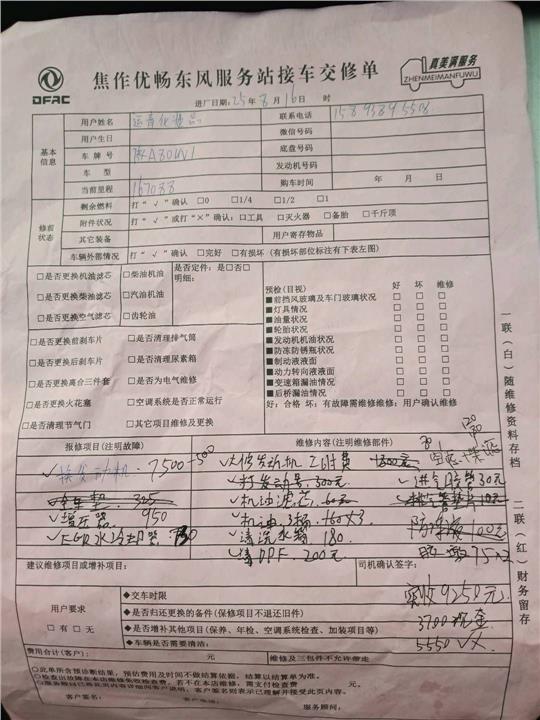 DFAC
焦作优畅东风服务站接车交修单
真美满服务
ZHENMEIMANFUWU
进厂日期:25年8月16日 时
基本信息
用户姓名 联系电话
用户生日 微信号码
车牌号 底盘号码
车型 发动机号码
当前里程 167088 购车时间 年 月 日
修前状态
剩余燃料 打“√”确认 □0 □1/4 □1/2 □1
附件状况 打“√”或打“×”确认:□工具 □灭火器 □备胎 □千斤顶
其它装备 用户寄存物品
车辆外部情况 打“√”确认 □完好 □有损坏(有损坏部位标注有下表左图)
□是否更换机油滤芯 □柴油机油 是否定件:是□否□
明细:
□是否更换柴油滤芯 □汽油机油
□是否更换空气滤芯 □齿轮油
预检(目视) 好 坏 维修
■前挡风玻璃及车门玻璃状况 □ □ □
■灯具情况 □ □ □
■油量状况 □ □ □
■轮胎状况 □ □ □
■发动机机油状况 □ □ □
■防冻防锈瓶状况 □ □ □
■制动液液面 □ □ □
■动力转向液液面 □ □ □
■变速箱漏油情况 □ □ □
■后桥漏油情况 □ □ □
好:合格 坏:有故障需维修维修:用户确认维修
□是否更换前刹车片 □是否清理排气筒
□是否更换后刹车片 □是否清理尿素箱
□是否更换离合三件套 □是否为电气维修
□是否更换火花塞 □空调系统是否正常运行
□是否清理节气门 □其它项目维修及更换
一联(白)随维修资料存档
二联(红)财务留存
报修项目(注明故障) 维修内容(注明维修部件)
7500
打发动号 300元
325 机油滤芯 60元
增压器 950 机油 3桶 160×3
EGR水冷却器 清洗水箱 180
清DPF 200元
进气胶管30元
防冻液 100元
建议维修项目或增补项目: 司机确认签字:
实收9250元
用户要求
□有 □无
◆交车时限
◆是否归还更换的备件(保修项目不退还旧件)
◆是否增补其他项目(保养、年检、空调系统检查、加装项目等)
◆车辆是否需要清洁:
3700现金
5550 VX
费用合计(客户): 元 维修及三包件不允许带走
○此单所含预诊断结果,预估费用及时间不做结算依据,结算以结算单为准。
客户签名: 服务顾问: